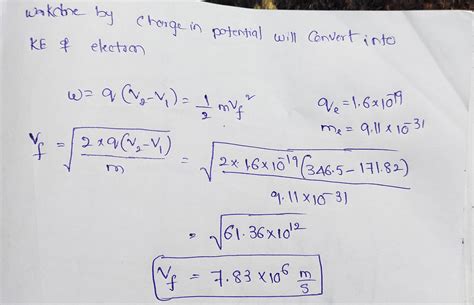 workdone by change in potential will convert into
KE of electron
w = q (V₂-V₁) = 1/2 mV_f²
q_e = 1.6×10^-19
m_e = 9.11 × 10^-31
V_f = √(2×q(V₂-V₁)/m) = √(2×1.6×10^-19(346.5-171.82)/9.11×10^-31)
= √61.36×10^12
V_f = 7.83 ×10^6 m/s